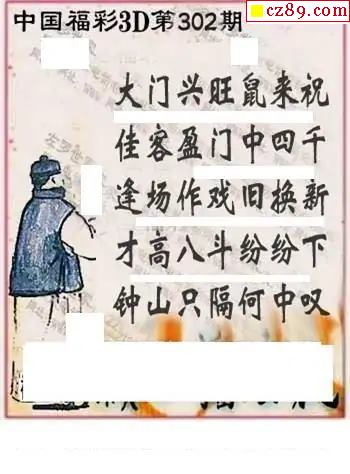 cz89.com
中国福彩3D第302期
大门兴旺鼠来祝
佳客盈门中四千
逢场作戏旧换新
才高八斗纷纷下
钟山只隔何中叹